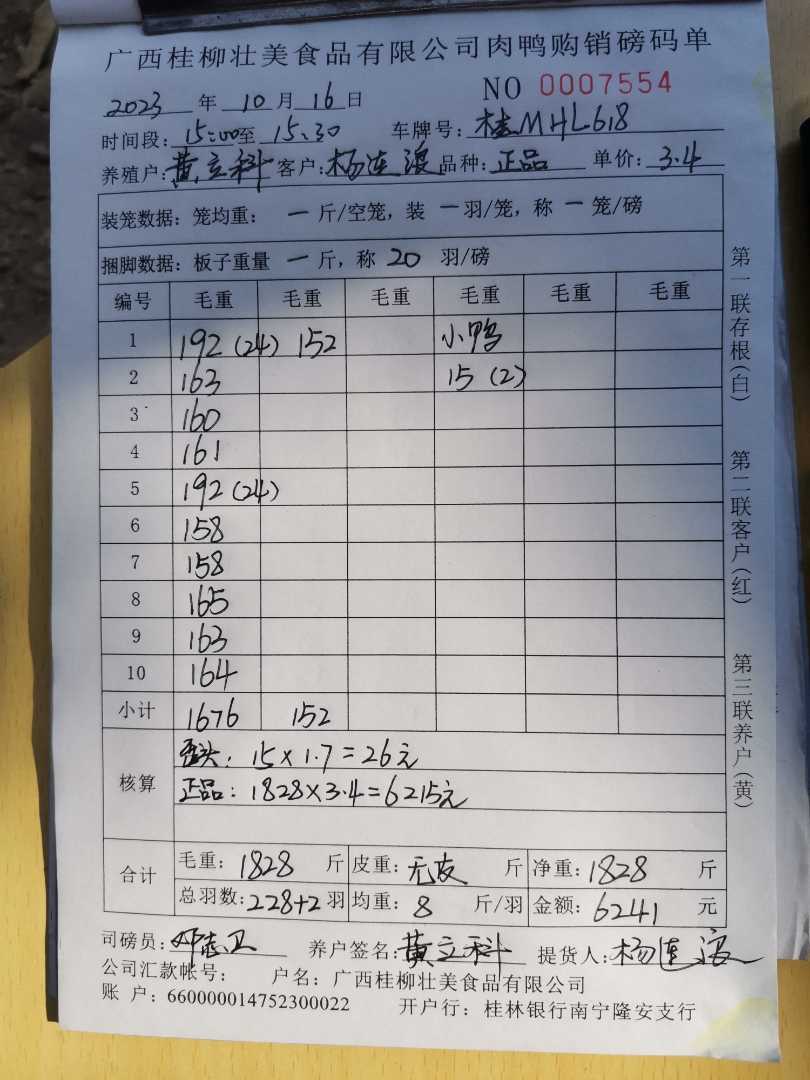 广西桂柳壮美食品有限公司肉鸭购销磅码单
NO 0007554
2023 年 10 月 16 日
时间段: 15:00 至 15:30 车牌号: 桂MHL618
养殖户: 黄立科 客户: 杨连滚 品种: 正品 单价: 3.4
装笼数据: 笼均重: 一 斤/空笼, 装 一 羽/笼, 称 一 笼/磅
捆脚数据: 板子重量 一 斤, 称 20 羽/磅
编号 毛重 毛重 毛重 毛重 毛重 毛重
1 192 (24) 152 小鸭
2 163 15 (2)
3 160
4 161
5 192 (24)
6 158
7 158
8 165
9 163
10 164
小计 1676 152
核算
歪头: 15×1.7=26元
正品: 1828×3.4=6215元
合计
毛重: 1828 斤 皮重: 无皮 斤 净重: 1828 斤
总羽数: 228+2 羽 均重: 8 斤/羽 金额: 6241 元
司磅员: 邓志卫 养户签名: 黄立科 提货人: 杨连滚
公司汇款帐号: 户名: 广西桂柳壮美食品有限公司
账 户: 660000014752300022 开户行: 桂林银行南宁隆安支行
第一联存根(白)
第二联客户(红)
第三联养户(黄)